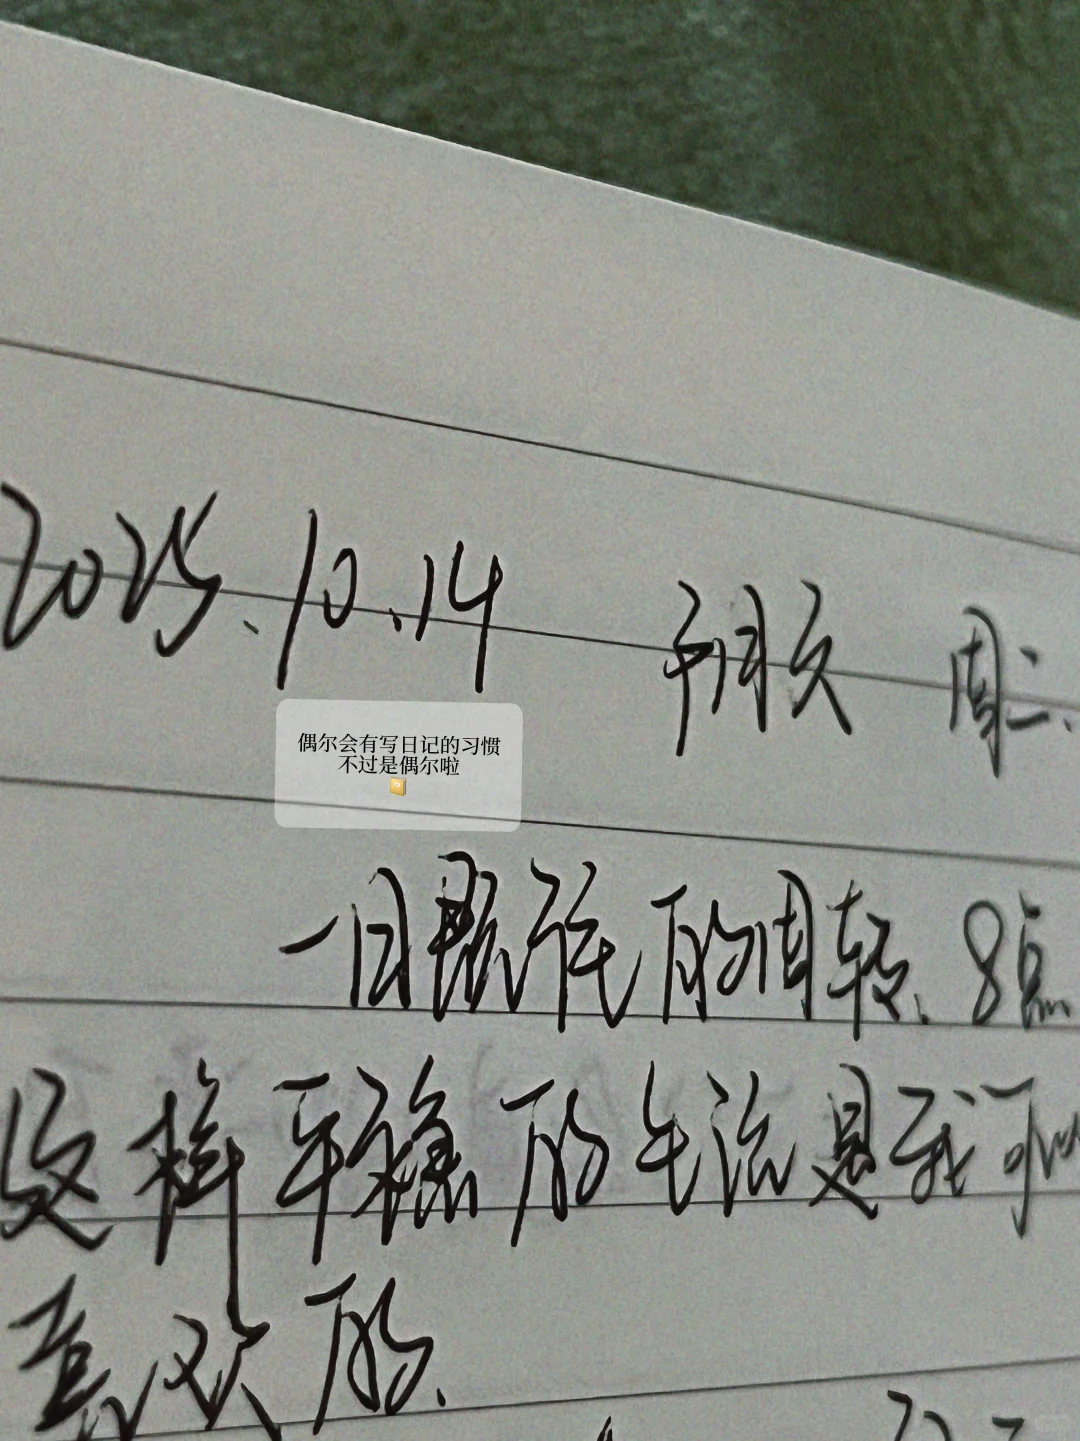 2025.10.14 阴天 周二.
偶尔会有写日记的习惯
不过是偶尔啦
一日 的周转. 8点
这样平稳的生活是我
喜欢的.